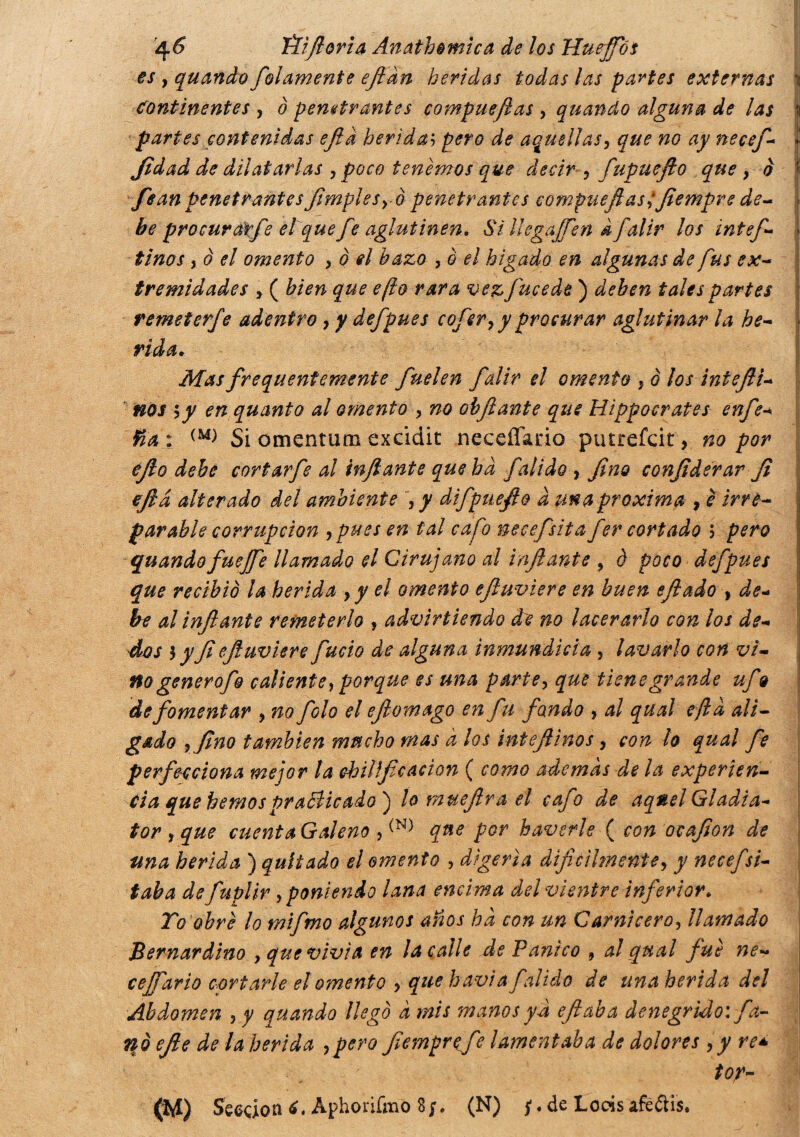 46 Historia Anathomica de los Huessos
es, quando solamente estàn heridas todas las partes externas
continentes, ò penetrantes compuestas, quando alguna de las
partes contenidas està herida; pero de aquellas, que no ay neces-
sidad de dilatarlas, poco tenèmos que decir, supuesto que, ò
sean penetrantes simples, ò penetrantes compuestas, siempre de-
be procurarse el que se aglutinen. Si llegassen à salir los intes-
tinos, ò el omento, ò el bazo, ò el higado en algunas de sus ex-
tremidades, ( bien que esto rara vez sucede ) deben tales partes
remeterse adentro, y despues coser, y procurar aglutinar la he-
rida.
Mas frequentemente suelen salir el omento, ò los intesti-
nos; y en quanto al omento, no obstante que Hippocrates ense-
ña: (M) Si omentum excidit necessario putrescit, no por
esto debe cortarse al instante que hà salido, sino considerar si
està alterado del ambiente, y dispuesto à una proxima, è irre-
parable corrupcion, pues en tal caso necessita ser cortado; pero
quando fuesse llamado el Cirujano al instante, ò poco despues
que recibiò la herida, y el omento estuviere en buen estado, de-
be al instante remeterlo, advirtiendo de no lacerarlo con los de-
dos; y si estuviere sucio de alguna inmundicia, lavarlo con vi-
no generoso caliente, porque es una parte, que tiene grande uso
de fomentar, no solo el estomago en su fondo, al qual està ali-
gado, sino tambien mucho mas à los intestinos, con lo qual se
perfecciona mejor la chilificacion ( como ademàs de la experien-
cia que hemos practicado ) lo muestra el caso de aquel Gladia-
tor, que cuenta Galeno, (N) que por haverle ( con ocasion de
una herida ) quitado el omento, digerìa dificilmente, y necessi-
taba de suplir, poniendo lana encima del vientre inferior.
Yo obrè lo mismo algunos años hà con un Carnicero, llamado
Bernardino, que vivia en la calle de Panico, al qual fuè ne-
cessario cortarle el omento, que havia salido de una herida del
Abdomen, y quando llegò à mis manos yà estaba denegrido: sa-
nò este de la herida, pero siempre se lamentaba de dolores, y re-
tor-
(M) Seccion 6. Aphorismo 85. (N) 5. de Locis afectis.